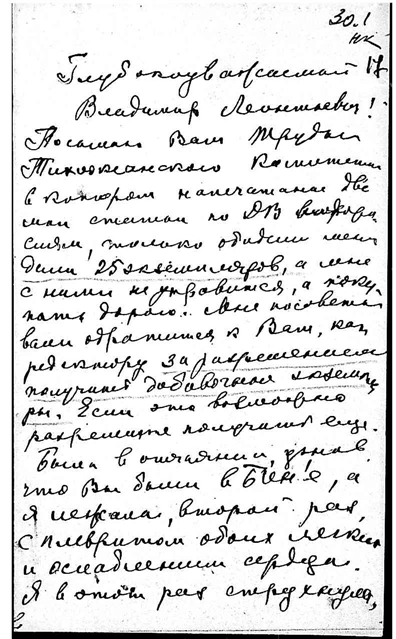 30.1
НК
17
Глубокоуважаемый
Владимир Леонтьевич!
Посылаю Вам Труды
Тихоокеанского Комитета
в котором напечатаны две
мои статьи по ДВ
только обидели меня
дали 25 экземпляров, а мне
с ними не управиться, а поку-
пать дорого. Мне посовето-
вали обратиться к Вам, как
редактору за разрешением
получить добавочные экземпля
ры. Если это возможно
разрешите получить еще.
Была в отчаянии, узнав
что Вы были в БИН'е, а
я лежала, второй раз,
с плевритом обоих легких
и ослаблением сердца.
Я в этот раз струхнула,